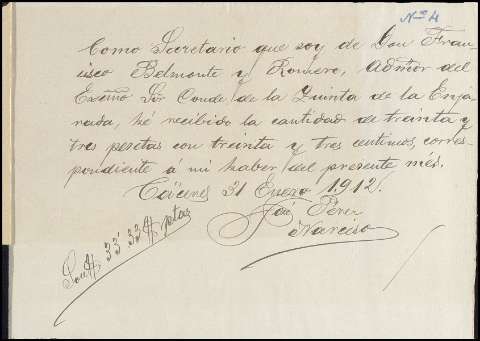 Nº 4
Como Secretario que soy de Don Fran-
cisco Belmonte y Romero, Admor del
Excmo Sr Conde de la Quinta de la Enja-
rada, hé recibido la cantidad de treinta y
tres pesetas con treinta y tres centimos, corres-
pondiente á mi haber del presente mes.
Cáceres 31 Enero 1912.
José Perez
Narciso
Son # 33' 33 # ptas